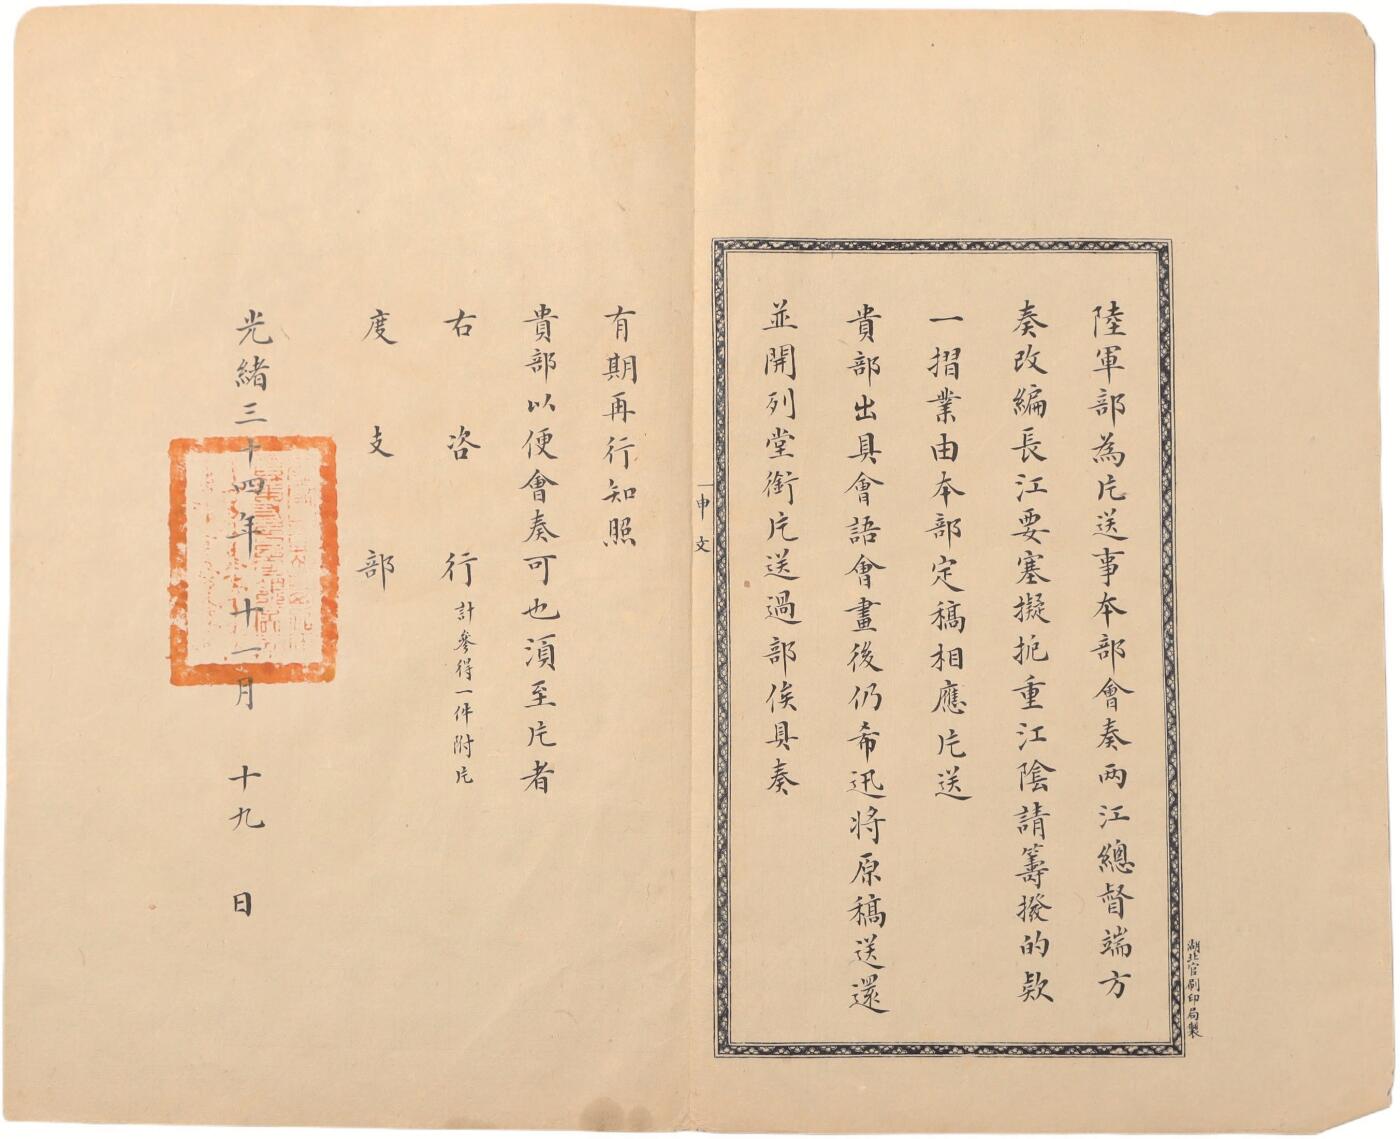 陸軍部為片送事本部會奏兩江總督端方
奏改編長江要塞擬扼重江陰請籌撥的款
一摺業由本部定稿相應片送
貴部出具會語會畫後仍希迅將原稿送還
並開列堂銜片送過部俟具奏
湖北官刷印局製
申文
有期再行知照
貴部以便會奏可也須至片者
右咨行計參得一件附片
度支部
光緒三十四年十一月十九日